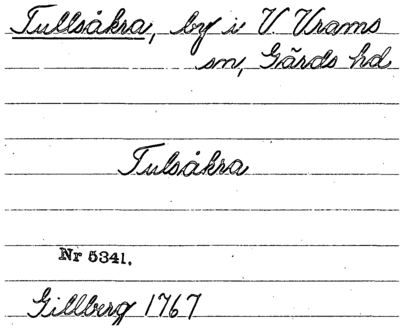 Tullsåkra, by i V. Vrams
sn, Gärds hd
Tulsåkra
Nr 5341.
Gillberg 1767